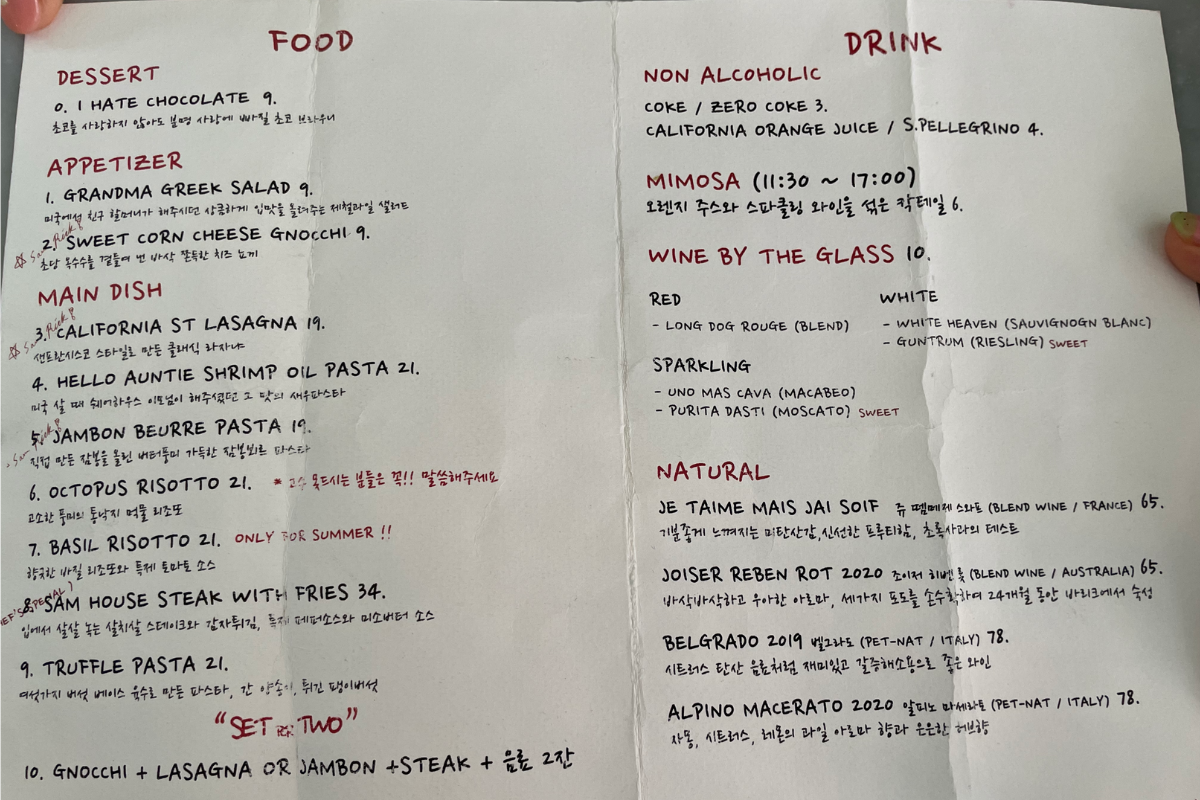 FOOD
DESSERT
0. I HATE CHOCOLATE 9.
초코를 사랑하지 않아도 분명 사랑에 빠질 초코 브라우니
APPETIZER
1. GRANDMA GREEK SALAD 9.
미국에서 친구 할머니가 해주시던 상큼하게 입맛을 돌려주는 제철과일 샐러드
☆ Sam Pick!
2. SWEET CORN CHEESE GNOCCHI 9.
초당 옥수수를 곁들여 낸 바삭 쫀득한 치즈 뇨끼
MAIN DISH
☆ Sam Pick!
3. CALIFORNIA ST LASAGNA 19.
샌프란시스코 스타일로 만든 클래식 라자냐
4. HELLO AUNTIE SHRIMP OIL PASTA 21.
미국 살 때 쉐어하우스 이모님이 해주셨던 그 맛의 새우파스타
Sam Pick!
5. JAMBON BEURRE PASTA 19.
직접 만든 잠봉을 올린 버터풍미 가득한 잠봉뵈르 파스타
6. OCTOPUS RISOTTO 21. * 고수 못드시는 분들은 꼭!! 말씀해주세요
고소한 풍미의 통낙지 먹물 리조또
7. BASIL RISOTTO 21. ONLY FOR SUMMER !!
향긋한 바질 리조또와 특제 토마토 소스
8. SAM HOUSE STEAK WITH FRIES 34.
입에서 살살 녹는 살치살 스테이크와 감자튀김, 특제 페퍼소스와 미소버터 소스
9. TRUFFLE PASTA 21.
여섯가지 버섯 베이스 육수로 만든 파스타, 간 양송이, 튀긴 팽이버섯
"SET FOR TWO"
10. GNOCCHI + LASAGNA OR JAMBON +STEAK + 음료 2잔
DRINK
NON ALCOHOLIC
COKE / ZERO COKE 3.
CALIFORNIA ORANGE JUICE / S.PELLEGRINO 4.
MIMOSA (11:30 ~ 17:00)
오렌지 주스와 스파클링 와인을 섞은 칵테일 6.
WINE BY THE GLASS 10.
RED
- LONG DOG ROUGE (BLEND)
WHITE
- WHITE HEAVEN (SAUVIGNOGN BLANC)
- GUNTRUM (RIESLING) SWEET
SPARKLING
- UNO MAS CAVA (MACABEO)
- PURITA DASTI (MOSCATO) SWEET
NATURAL
JE TAIME MAIS JAI SOIF 쥬 뗌메제스와프 (BLEND WINE / FRANCE) 65.
기분좋게 느껴지는 미탄산감, 신선한 프루티함, 초록사과의 테스트
JOISER REBEN ROT 2020 조이저 히벤 롯 (BLEND WINE / AUSTRALIA) 65.
바삭바삭하고 우아한 아로마, 세가지 포도를 손수확하여 24개월 동안 바리크에서 숙성
BELGRADO 2019 벨그라도 (PET-NAT / ITALY) 78.
시트러스 탄산 음료처럼 재미있고 갈증해소용으로 좋은 와인
ALPINO MACERATO 2020 알피노 마세라토 (PET-NAT / ITALY) 78.
자몽, 시트러스, 레몬의 과일 아로마 향과 은은한 허브향